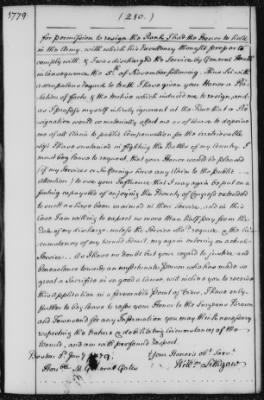 1779
(280)
for permission to resign the Rank I held the Honor to hold
in the Army, with which his Excellency thought proper to
comply with & I was discharged the Service by General
in Consequence the 5th of November following. Thus Sir with
a scrupulous regard to truth I have given your Honor a Re-
lation of facts & the motive which induced me to resign, and
as I profess myself intirely ignorant at the time that a Re-
signation would so materially affect me as to leave me deprive
me of all claim to public Compensation for the irretrievable
injury I have sustained in fighting the Battles of my Country. I
must beg leave to request, that your Honor would be pleased
(if my Services or Sufferings have any claim to the public
attention) to use your Influence that I may again be put on a
footing capacitated of enjoying the Bounty of Congress extended
to such as have been maimed in their Service, and in this
Case I am willing to expect no more than half pay from the
Date of my discharge unless the Service shd. require & the Cir-
cumstances of my Wound admit my again entering on actual
Service. As I have no doubt but your regard to justice, and
Benevolence towards an unfortunate Person who has made so
great a Sacrifice in so good a Cause, will induce you to receive
this application in a favorable point of View, I have only
further to beg leave to refer your Honor to the Surgeons
and Townsend for any Information you may think necessary
respecting the nature & debilitating Circumstances of the
Wound, and am with profound respect
Boston 6th Jany 1779.
Your Honor's Obt. Servt.
Honble. M. General Gates